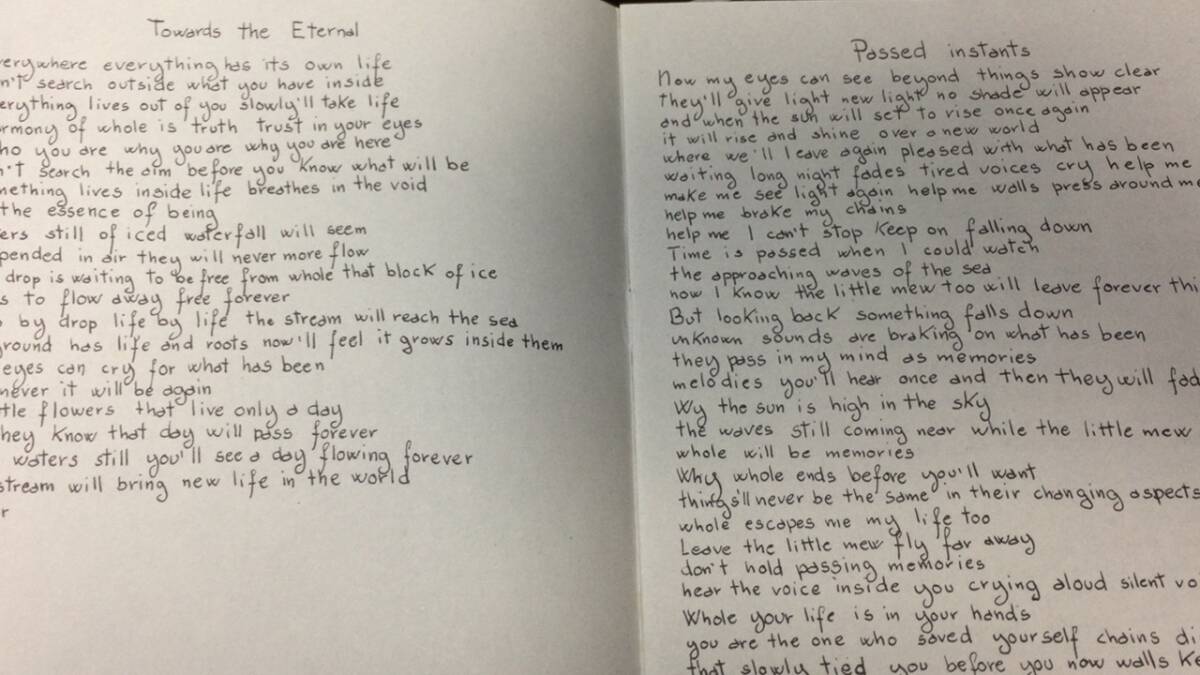 Towards the Eternal
verywhere everything has its own life
n't search outside what you have inside
erything lives out of you slowly'll take life
rmony of whole is truth trust in your eyes
ho you are why you are why you are here
n't search the aim before you know what will be
mething lives inside life breathes in the void
the essence of being
ers still of iced waterfall will seem
pended in air they will never more flow
drop is waiting to be free from whole that block of ice
s to flow away free forever
by drop life by life the stream will reach the sea
ground has life and roots now'll feel it grows inside them
eyes can cry for what has been
never it will be again
ttle flowers that live only a day
hey know that day will pass forever
waters still you'll see a day flowing forever
stream will bring new life in the world
r
Passed instants
Now my eyes can see beyond things show clear
they'll give light new light no shade will appear
and when the sun will set to rise once again
it will rise and shine over a new world
where we'll leave again pleased with what has been
waiting long night fades tired voices cry help me
make me see light again help me walls press around me
help me brake my chains
help me I can't stop keep on falling down
Time is passed when I could watch
the approaching waves of the sea
now I know the little mew too will leave forever thi
But looking back something falls down
unknown sounds are braking on what has been
they pass in my mind as memories
melodies you'll hear once and then they will fad
Wy the sun is high in the sky
the waves still coming near while the little mew
whole will be memories
Why whole ends before you'll want
things'll never be the same in their changing aspects
whole escapes me my life too
Leave the little mew fly far away
don't hold passing memories
hear the voice inside you crying aloud silent vo
Whole your life is in your hands
you are the one who saved yourself chains di
that slowly tied you before you now walls ke